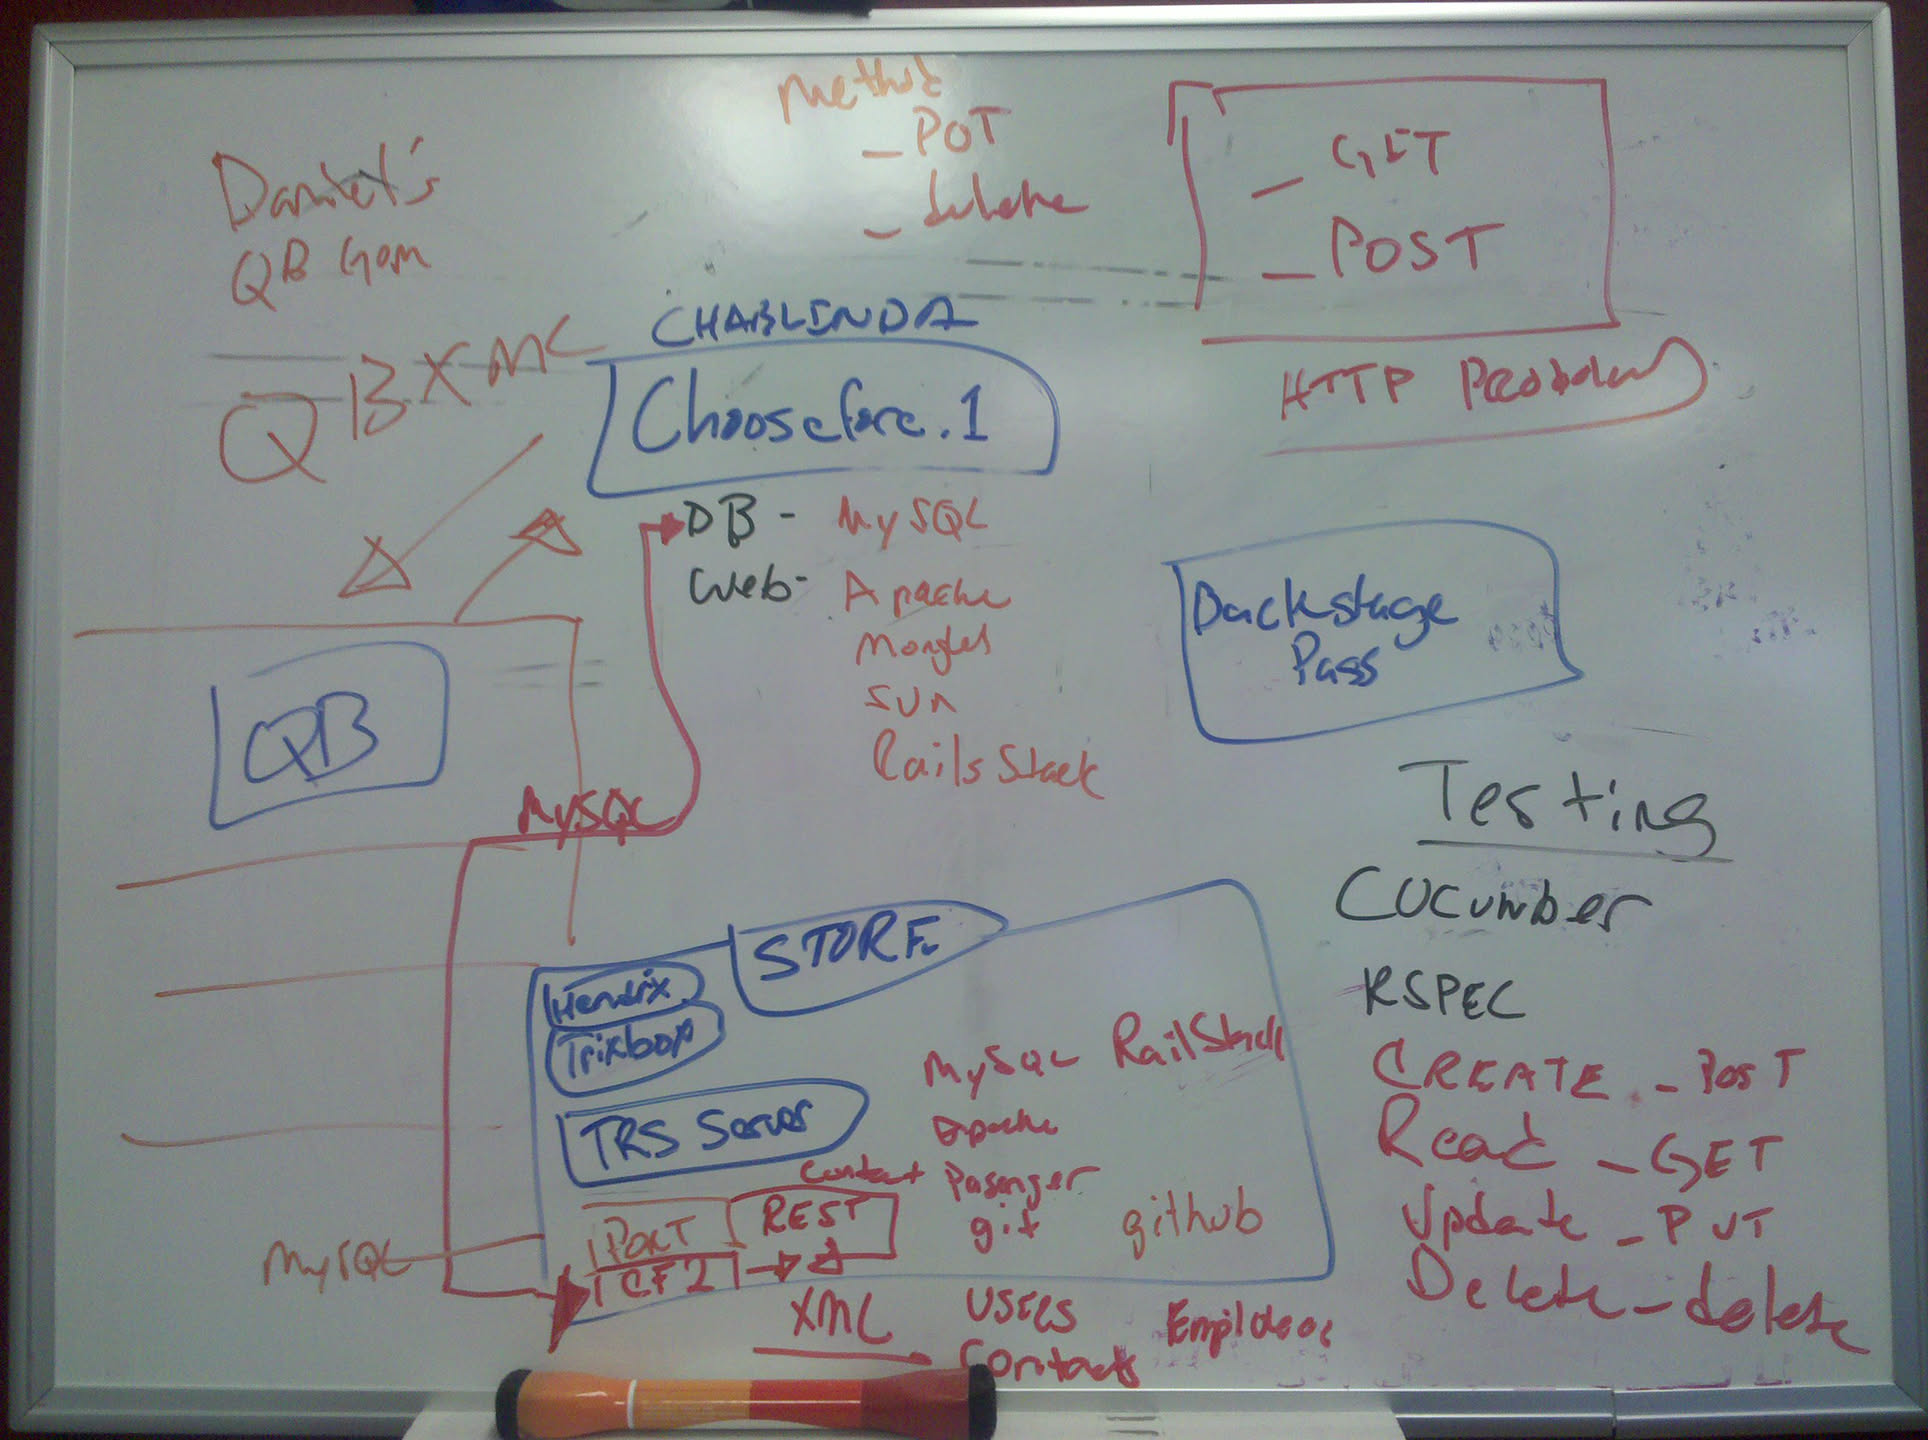 Method
_ POT
_ delete
_ GET
_ POST
HTTP
Daniel's
QB Gem
QBXML
CHABLINDA
Choosefore.1
DB - MySQL
Web - Apache
Mongrel
Sun
Rails Stack
Backstage
Pass
QB
MySQL
Testing
Cucumber
RSPEC
CREATE _ POST
Read _ GET
Update _ PUT
Delete _ delete
STORE
Hendrix
Trixbox
TRS Server
MySQL RailStack
Apache
Contact Pasenger
PORT REST git github
MySQL
CF2
XML USERS Employee
Contacts